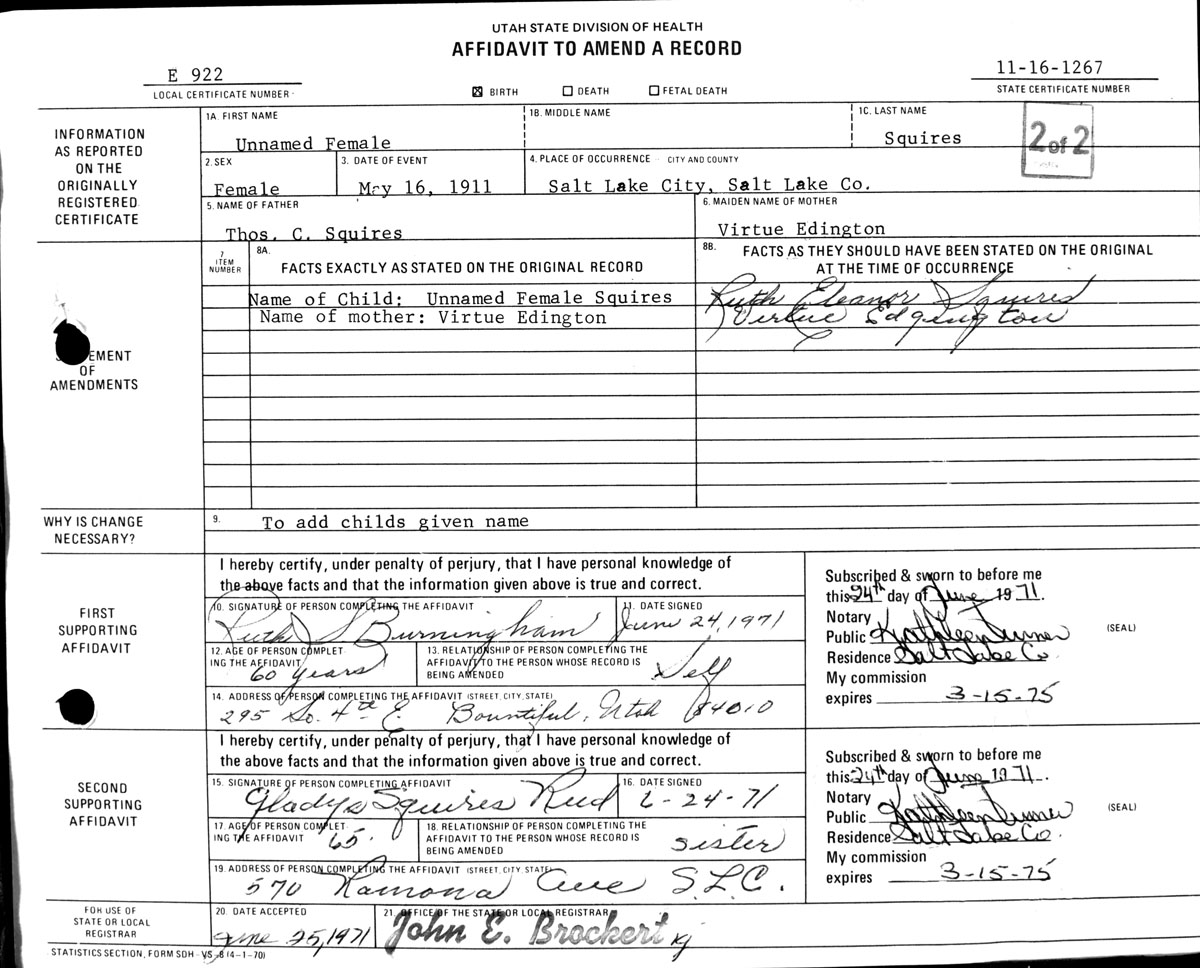 UTAH STATE DIVISION OF HEALTH
AFFIDAVIT TO AMEND A RECORD
E 922
LOCAL CERTIFICATE NUMBER
☒ BIRTH ☐ DEATH ☐ FETAL DEATH
11-16-1267
STATE CERTIFICATE NUMBER
INFORMATION
AS REPORTED
ON THE
ORIGINALLY
REGISTERED
CERTIFICATE
1A. FIRST NAME
Unnamed Female
1B. MIDDLE NAME
1C. LAST NAME
Squires
2 of 2
2. SEX
Female
3. DATE OF EVENT
May 16, 1911
4. PLACE OF OCCURRENCE - CITY AND COUNTY
Salt Lake City, Salt Lake Co.
5. NAME OF FATHER
Thos. C. Squires
6. MAIDEN NAME OF MOTHER
Virtue Edington
OF
AMENDMENTS
7
ITEM
NUMBER
8A.
FACTS EXACTLY AS STATED ON THE ORIGINAL RECORD
8B. FACTS AS THEY SHOULD HAVE BEEN STATED ON THE ORIGINAL
AT THE TIME OF OCCURRENCE
Name of Child: Unnamed Female Squires
Ruth Eleanor Squires
Name of mother: Virtue Edington
Virtue Edgington
WHY IS CHANGE
NECESSARY?
9. To add childs given name
FIRST
SUPPORTING
AFFIDAVIT
I hereby certify, under penalty of perjury, that I have personal knowledge of
the above facts and that the information given above is true and correct.
10. SIGNATURE OF PERSON COMPLETING THE AFFIDAVIT
Ruth S Burningham
11. DATE SIGNED
June 24, 1971
12. AGE OF PERSON COMPLET
ING THE AFFIDAVIT
60 years
13. RELATIONSHIP OF PERSON COMPLETING THE
AFFIDAVIT TO THE PERSON WHOSE RECORD IS
BEING AMENDED
Self
14. ADDRESS OF PERSON COMPLETING THE AFFIDAVIT (STREET, CITY, STATE)
295 So. 4th E. Bountiful, Utah 84010
Subscribed & sworn to before me
this 24th day of June 1971.
Notary
Public Kathleen Turner
(SEAL)
Residence Salt Lake Co
My commission
expires 3-15-75
SECOND
SUPPORTING
AFFIDAVIT
I hereby certify, under penalty of perjury, that I have personal knowledge of
the above facts and that the information given above is true and correct.
15. SIGNATURE OF PERSON COMPLETING AFFIDAVIT
Gladys Squires Reed
16. DATE SIGNED
6-24-71
17. AGE OF PERSON COMPLET
ING THE AFFIDAVIT
65.
18. RELATIONSHIP OF PERSON COMPLETING THE
AFFIDAVIT TO THE PERSON WHOSE RECORD IS
BEING AMENDED
sister
19. ADDRESS OF PERSON COMPLETING THE AFFIDAVIT (STREET, CITY, STATE)
570 Ramona Ave S.L.C.
Subscribed & sworn to before me
this 24th day of June 1971.
Notary
Public Kathleen Turner
(SEAL)
Residence Salt Lake Co
My commission
expires 3-15-75
FOR USE OF
STATE OR LOCAL
REGISTRAR
20. DATE ACCEPTED
June 25, 1971
21. OFFICE OF THE STATE OR LOCAL REGISTRAR
John E. Brockert kj
STATISTICS SECTION, FORM SDH-VS-8 (4-1-70)